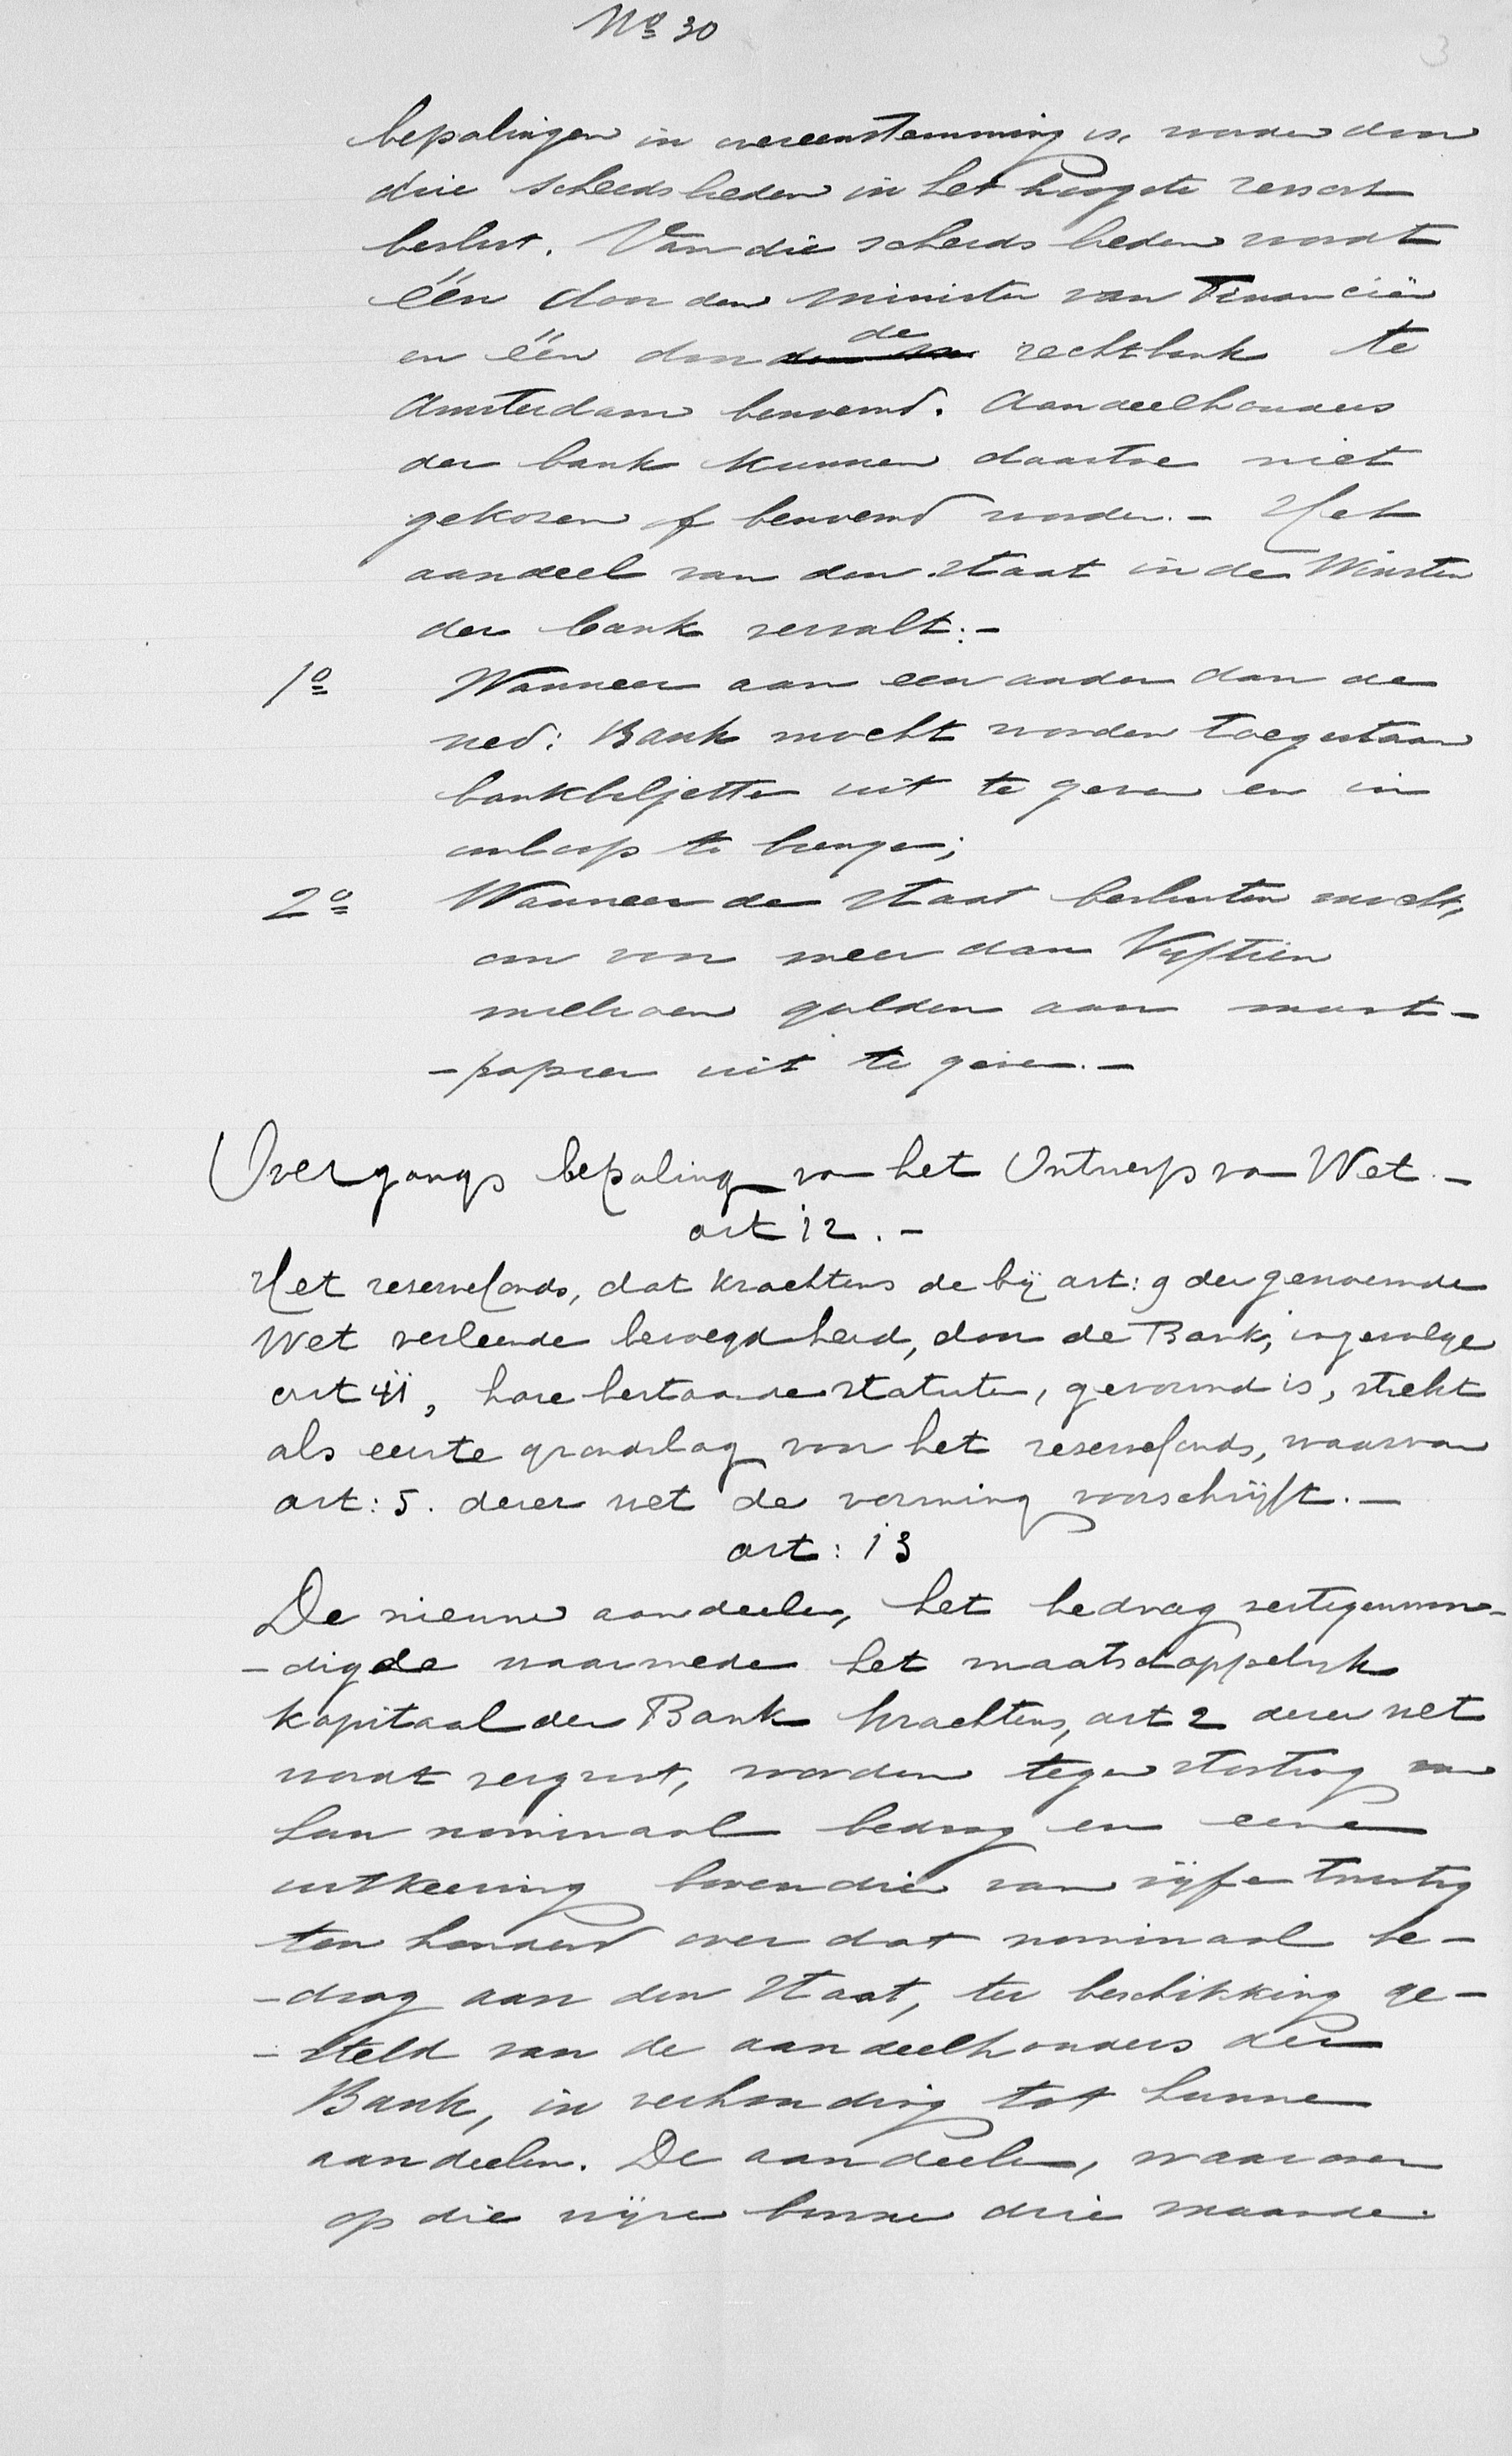 No 30
3
bepalingen in overeenstemming is, worden door
drie scheidslieden in het hoogste ressort
beslist. Van die scheidslieden wordt
één door den minister van Financiën
en één door de rechtbank te
Amsterdam benoemd. Aandeelhouders
der bank kunnen daartoe niet
gekozen of benoemd worden. - Het
aandeel van den staat in de Winsten
der bank vervalt: -
1o Wanneer aan een ander dan de
ned: Bank mocht worden toegestaan
bankbiljetten uit te geven en in
omloop te brengen;
2o Wanneer de staat besluiten mocht,
om voor meer dan Vijftien
millioen gulden aan munt-
-papier uit te geven. -
Overgangs bepaling van het Ontwerp van Wet. -
art 12. -
Het reservefonds, dat krachtens de bij art: 9 der genoemde
Wet verleende bevoegdheid, door de Bank, ingevolge
art 41, hare bestaande statuten, gevormd is, strekt
als eerste grondslag voor het reservefonds, waarvan
art: 5. dezer wet de vorming voorschrijft. -
art: 13
De nieuwe aandeelen, het bedrag vertegenwoor-
-digde waarmede het maatschappelijk
kapitaal der Bank krachtens, art 2 dezer wet
wordt vergroot, worden tegen storting van
hun nominaal bedrag en eene
uitkeering bovendien van vijf en twintig
ten honderd over dat nominaal be-
-drag aan den Staat, ter beschikking ge-
-steld van de aandeelhouders der
Bank, in verhouding tot hunne
aandeelen. De aandeelen, waarover
op die wijze binnen drie maanden